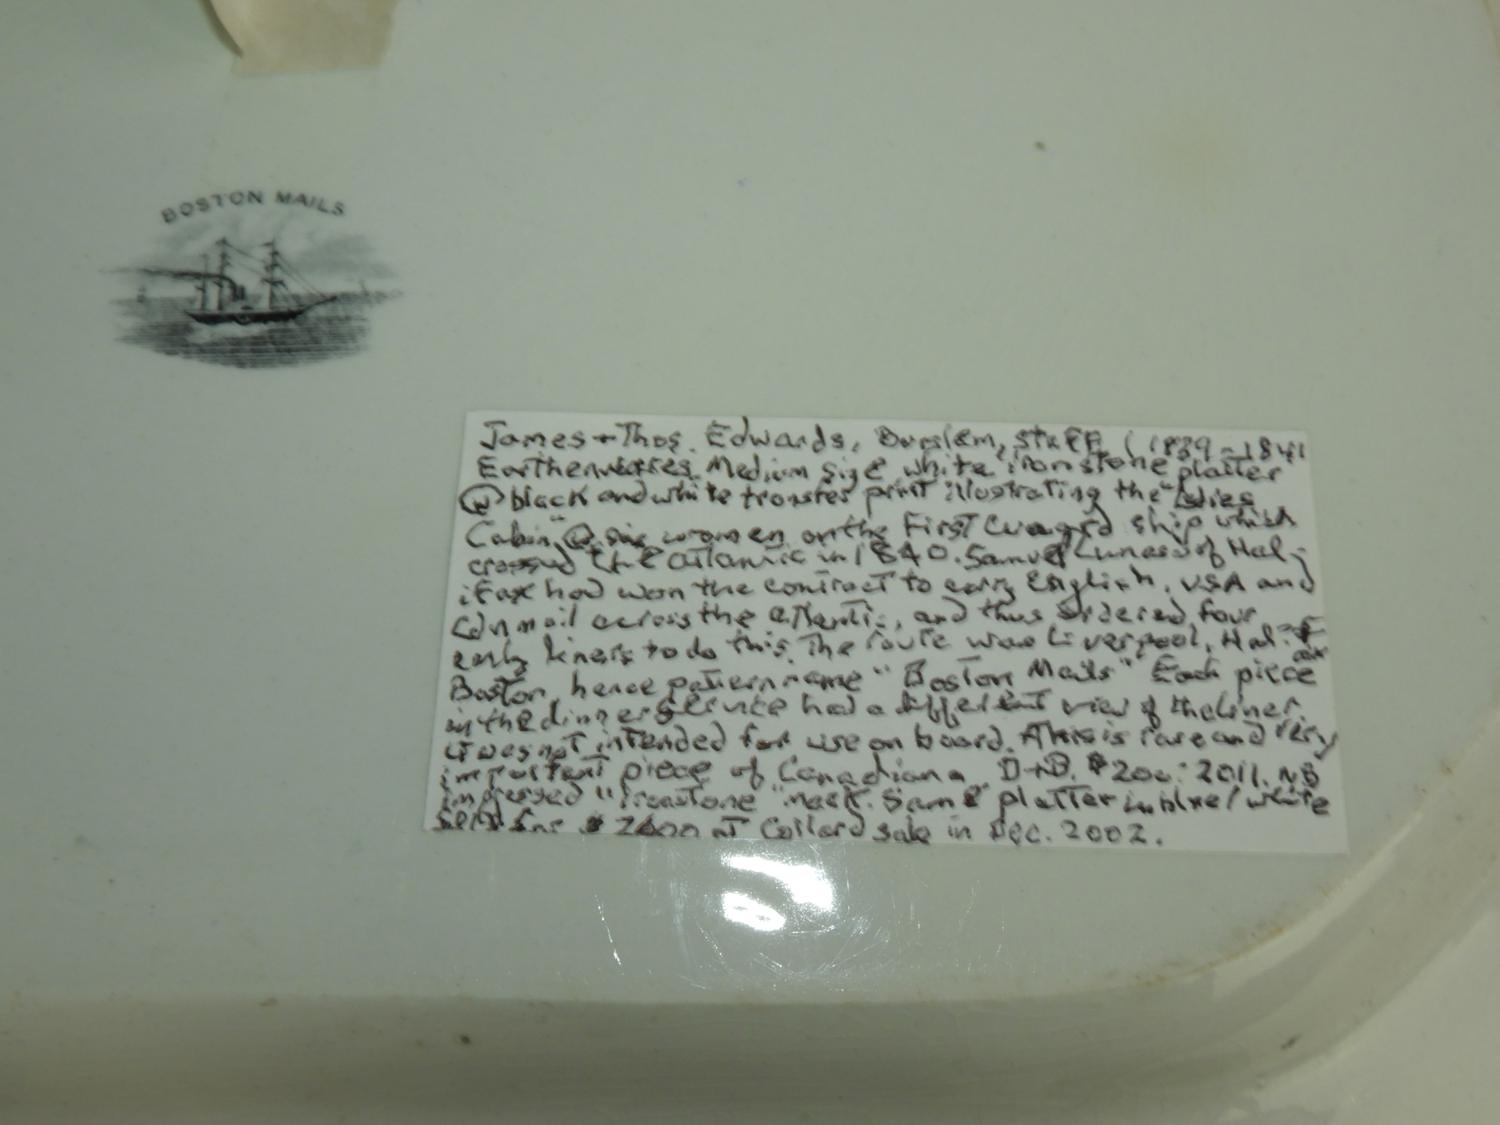 BOSTON MAILS
James + Thos. Edwards, Burslem, Staff. (1839-1841
Earthenwares. Medium size white ironstone platter
@ black and white transfer print illustrating the "Ladies
Cabin" @ six women on the First Cunard ship which
crossed the Atlantic in 1840. Samuel Cunard of Hal-
ifax had won the contract to carry English, USA and
Cdn mail across the Atlantic, and thus ordered four
early liners to do this. The route was Liverpool, Halifax
Boston, hence pattern name "Boston Mails" Each piece
in the dinner service had a different view of the liner.
It was not intended for use on board. This is rare and very
important piece of Canadiana. D+B. $200. 2011. NB
impressed "Ironstone" mark. Same platter in blue/white
for $ at Collard sale in Dec. 2002.